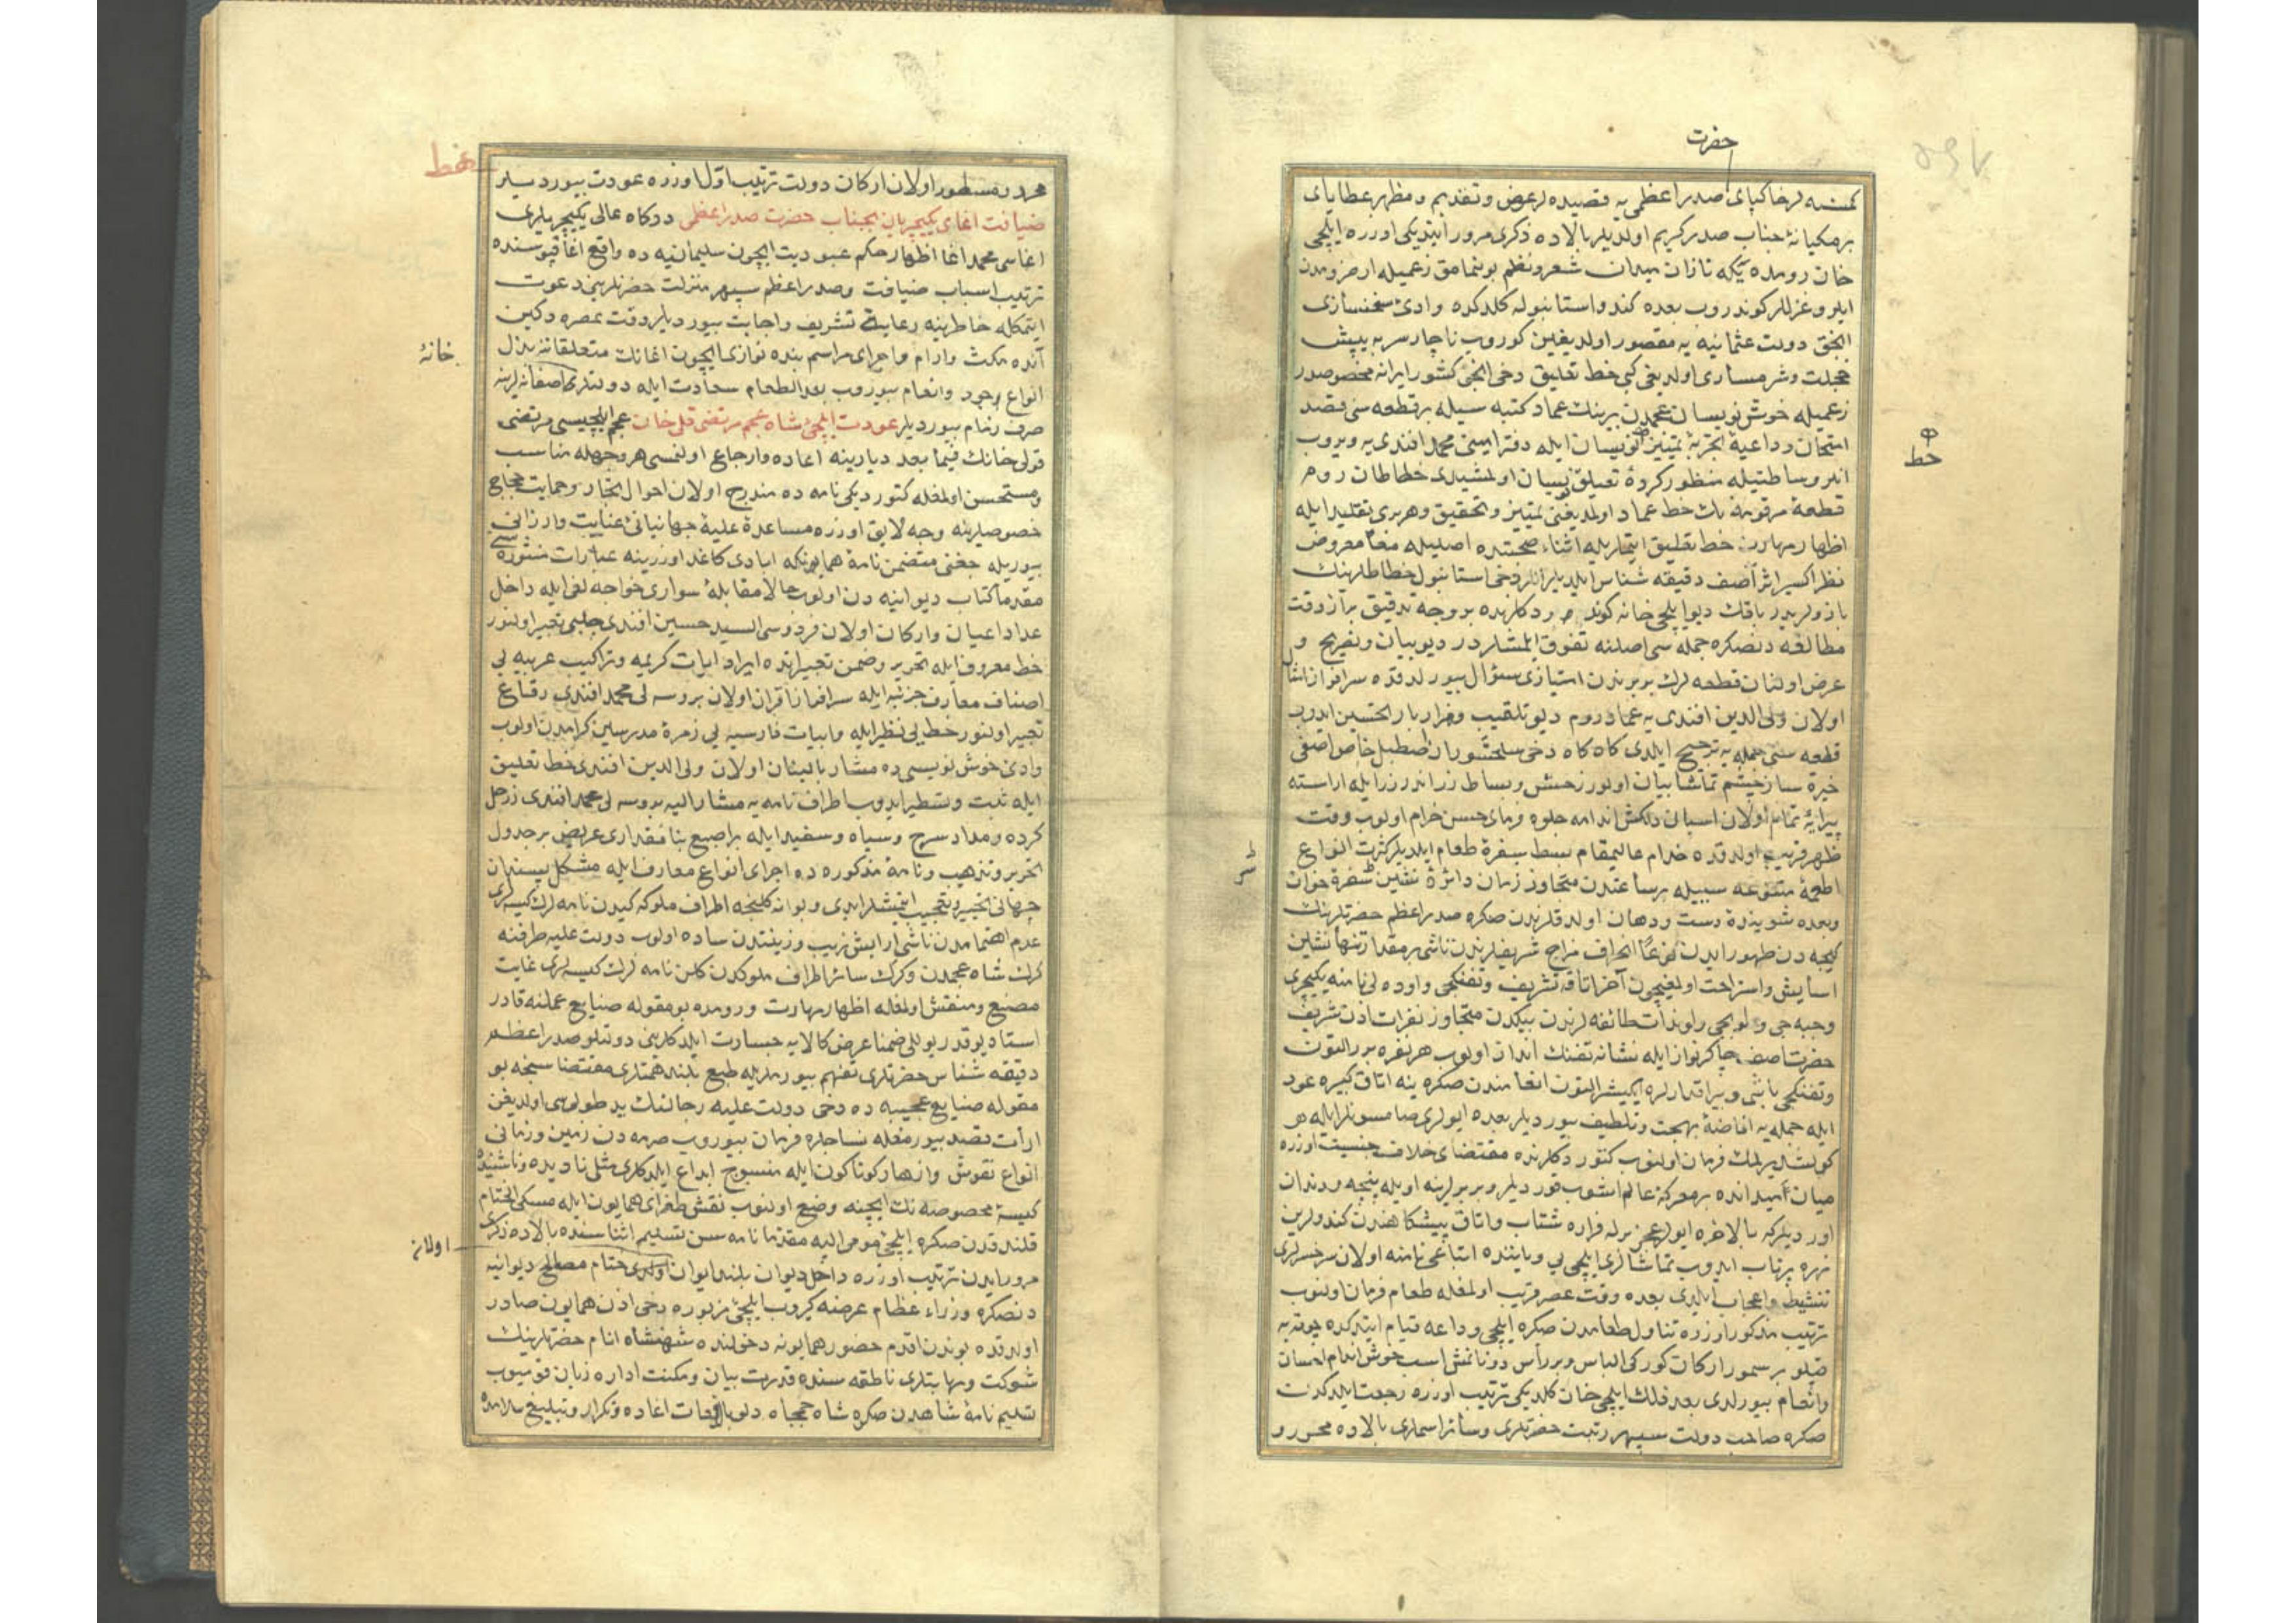 حضرت
كمسنه لر خاكپای صدر اعظمی یه قصیده لر عرض و تقدیم و مظهر عطایای
برمكیانهٔ جناب صدر كریم اولدیلر بالاده ذكری مرور ایتدیكی اوزره ایلچی
خان رومده یكه تازان میدان شعر و نظم بولنمامق زعمیله ارضرومدن
ایلرو غزللر كوندروب بعده كندو استانبوله كلدكده وادیٔ سخنسازی
انجق دولت عثمانیه یه مقصور اولدیغین كوروب ناچار سر به پیش
خجلت و شرمساری اولدیغی كبی خط تعلیق دخی انجق كشور ایرانه مخصوصدر
زعمیله خوش نویسان عجمدن میرینك عماد كتبه سیله بر قطعه سنی قصد
امتحان و داعیهٔ تجربهٔ تمیز خط نویسان ایله دفتر امینی محمد افندی یه ویروب
انلر وساطتیله منظور كردهٔ تعلیق نویسان اولمشیدی خطاطان روم
قطعهٔ مرقومه نك خط عماد اولدیغنی تمییز و تحقیق و هر بری تقلید ایله
اظهار مهارت خط تعلیق ایتدیلر اثناء صحبتده اصلیله معا معروض
نظر اكسیر اثر آصف دقیقه شناس ایلدیلر انلر دخی استانبول خطاطلرینك
یازولریدر باقك دیو ایلچی خانه كوندردكلرنده بر وجه تدقیق بر آز وقت
مطالعه دنصكره جمله سی اصلنه تفوق ایلمشلردر دیو بیان و تفریح و
عرض اولنان قطعه لرك بربرندن امتیازی سؤال بیورلدقده سرافراز امثال
اولان ولی الدین افندی یه عماد روم دیو تلقیب و هزار بار تحسین ایدوب
قطعه سنی جمله یه ترجیح ایلدی كاه كاه دخی سلحشوران اصطبل خاص آصفی
خیره ساز چشم تماشابیان اولور زحش و بساط زر اندر زر ایله اراسته
پیرایهٔ تمام اولان اسبان دلكش اندامه جلوه فرمای حسن خرام اولوب وقت
ظهر قریب اولدقده خدام عالیمقام بسط سفرهٔ طعام ایلدیلر كثرت انواع
اطعمهٔ متنوعه سببیله بر ساعتدن متجاوز زمان دائرهٔ نشین سفرهٔ خوان
و بعده شویندهٔ دست و دهان اولدقلرندن صكره صدر اعظم حضرتلرینك
كیجه دن ظهور ایدن نوعا انحراف مزاج شریفلرندن ناشی بر مقدار تنها نشین
آسایش و استراحت اولمغیچون آخر اتاقه تشریف و تفنكجی و اوده لی نامنه یكیچری
و جبه جی و طوپجی و لوندات طائفه لرندن بیكدن متجاوز نفرات اذن شریف
حضرت آصف چاكرنواز ایله نشانه تفنك انداز اولوب هر نفره برر التون
و تفنكجی باشی و بیراقدارلره ایكیشر التون انعامندن صكره ینه اتاق كبیره عود
ایله جمله یه افاضهٔ بهجت و تلطیف بیوردیلر بعده ایولری صامسونلر ایله
كولشدیرلمك فرمان اولنوب كتوردكلرنده مقتضای خلاف جنسیت اوزره
میان میدانده بر معركهٔ عالم آشوب قوردیلر و بربرلرینه اویله پنجه و دندان
اوردیلركه بالاخره ایولر عجز برله فراره شتاب و اتاق پیشكاهندن كندولرین
زهره پرتاب ایدوب تماشالری ایلچی یی و یاننده اتباعی نامنه اولان سرخسرلری
تنشیط و اعجاب ایلدی بعده وقت عصر قریب اولمغله طعام فرمان اولنوب
ترتیب مذكور اوزره تناول طعامدن صكره ایلچی وداعه قیام ایتدكده چوقه یه
قپلو بر سمور اركان كوركی الباس و بر رأس دونانمش اسب خوش اندام احسان
و انعام بیورلدی بعد ذلك ایلچی خان كلدیكی ترتیب اوزره رجعت ایلدكدن
صكره صاحب دولت سپهر رتبت حضرتلری و سائر اسماری بالاده محرر و
خط
محرر و مسطور اولان اركان دولت ترتیب اول اوزره عودت بیوردیلر
ضیافت اغای یكیچریان بجناب حضرت صدر اعظمی دركاه عالی یكیچریلری
اغاسی محمد اغا اظهار حكم عبودیت ایچون سلیمانیه ده واقع اغاقپوسنده
ترتیب اسباب ضیافت و صدر اعظم سپهر منزلت حضرتلرینی دعوت
ایتمكله خاطرینه رعایة تشریف و اجابت بیوردیلر وقت عصره دكین
آنده مكث و ارام و اجرای مراسم بنده نوازی ایچون اغانك متعلقاتنه بذل
انواع جود و انعام بیوروب بعد الطعام سعادت ایله دولتلری آصفانه لرینه
خانهٔ
صرف زمام بیوردیلر عودت ایلچیٔ شاه عجم مرتضی قلی خان عجم ایلچیسی مرتضی
قولی خانك فیما بعد دیارینه اعاده و ارجاع اولنمسی هر وجهله مناسب
و مستحسن اولمغله كتوردیكی نامه ده مندرج اولان احوال تجار و حمایت حجاج
خصوصلرینه وجه لایق اوزره مساعدهٔ علیهٔ جهانبانی عنایت و ارزانی
بیوریله جغنی متضمن نامهٔ همایونكه ابادی كاغد اوزرینه عبارات منثوره سی
مقدما كتاب دیوانیه دن اولوب حالا مقابلهٔ سواری خواجه لغی ایله داخل
عداد اعیان و اركان اولان فردوسی السید حسین افندی چلپی تعبیر اولنور
خط معروف ایله تحریر و ضمن تعبیراتده ایراد ایات كریمه و تراكیب عربیه یی
اصناف معارف جزئیه ایله سرافراز اقران اولان بروسه لی محمد افندی رقاع
تعبیر اولنور خط بی نظیر ایله و ابیات فارسیه یی زمرهٔ مدرسین كرامدن اولوب
وادیٔ خوش نویسی ده مشار بالبنان اولان ولی الدین افندی خط تعلیق
ایله ثبت و تسطیر ایدوب اطراف نامه یه مشار الیه بروسه لی محمد افندی زر حل
كرده و مداد سرخ و سیاه و سفید ایله بر اصبع بنا مقداری عریض بر جدول
تحریر و تذهیب و نامهٔ مذكوره ده اجرای انواع معارف ایله مشكل پسندان
جهانی تحییر و تعجیب ایتمشلر ایدی و بو آنه كلنجه اطراف ملوكه كیدن نامه لرك كیسه لری
عدم اهتمامدن ناشی آرایش زیب و زینتدن ساده اولوب دولت علیه طرفنه
كرك شاه عجمدن و كرك سائر اطراف ملوكدن كلن نامه لرك كیسه لری غایت
مصنع و منقش اولمغله اظهار مهارت و رومده بو مقوله صنایع عملنه قادر
استاد یوقدر یوللی ضمنا عرض كالایه جسارت ایلدكلرینی دولتلو صدر اعظم
دقیقه شناس حضرتلری تفهم بیورملریله طبع بلند همتلری مقتضاسنجه بو
مقوله صنایع عجیبه ده دخی دولت علیه رجالنك ید طولیسی اولدیغن
ارأت قصد بیورمغله نساجلره فرمان بیوروب صرمه دن زمین و زمانی
انواع نقوش و ازهار كوناكون ایله منسوج ابداع ایلدكلری مثلی نادیده و ناشنیده
كیسهٔ مخصوصه نك ایچنه وضع اولنوب نقش طغرای همایون ایله مسكی الختام
قلندقدن صكره ایلچیٔ مومی الیه مقدما نامه سن تسلیم اثناسنده بالاده ذكری
اولان
مرور ایدن ترتیب اوزره داخل دیوان بلند ایوان اولدی ختام مصالح دیوانیه
دنصكره وزراء عظام عرضه كیروب ایلچیٔ مزبوره دخی اذن همایون صادر
اولدقده بوندن اقدم حضور همایونه دخولنده شهنشاه انام حضرتلرینك
شوكت و مهابتلری ناطقه سنده قدرت بیان و مكنت اداره زبان قومیوب
تسلیم نامهٔ شاهدن صكره شاه جمجاه دلو بالدفعات اعاده و تكرار و تبلیغ سلامده